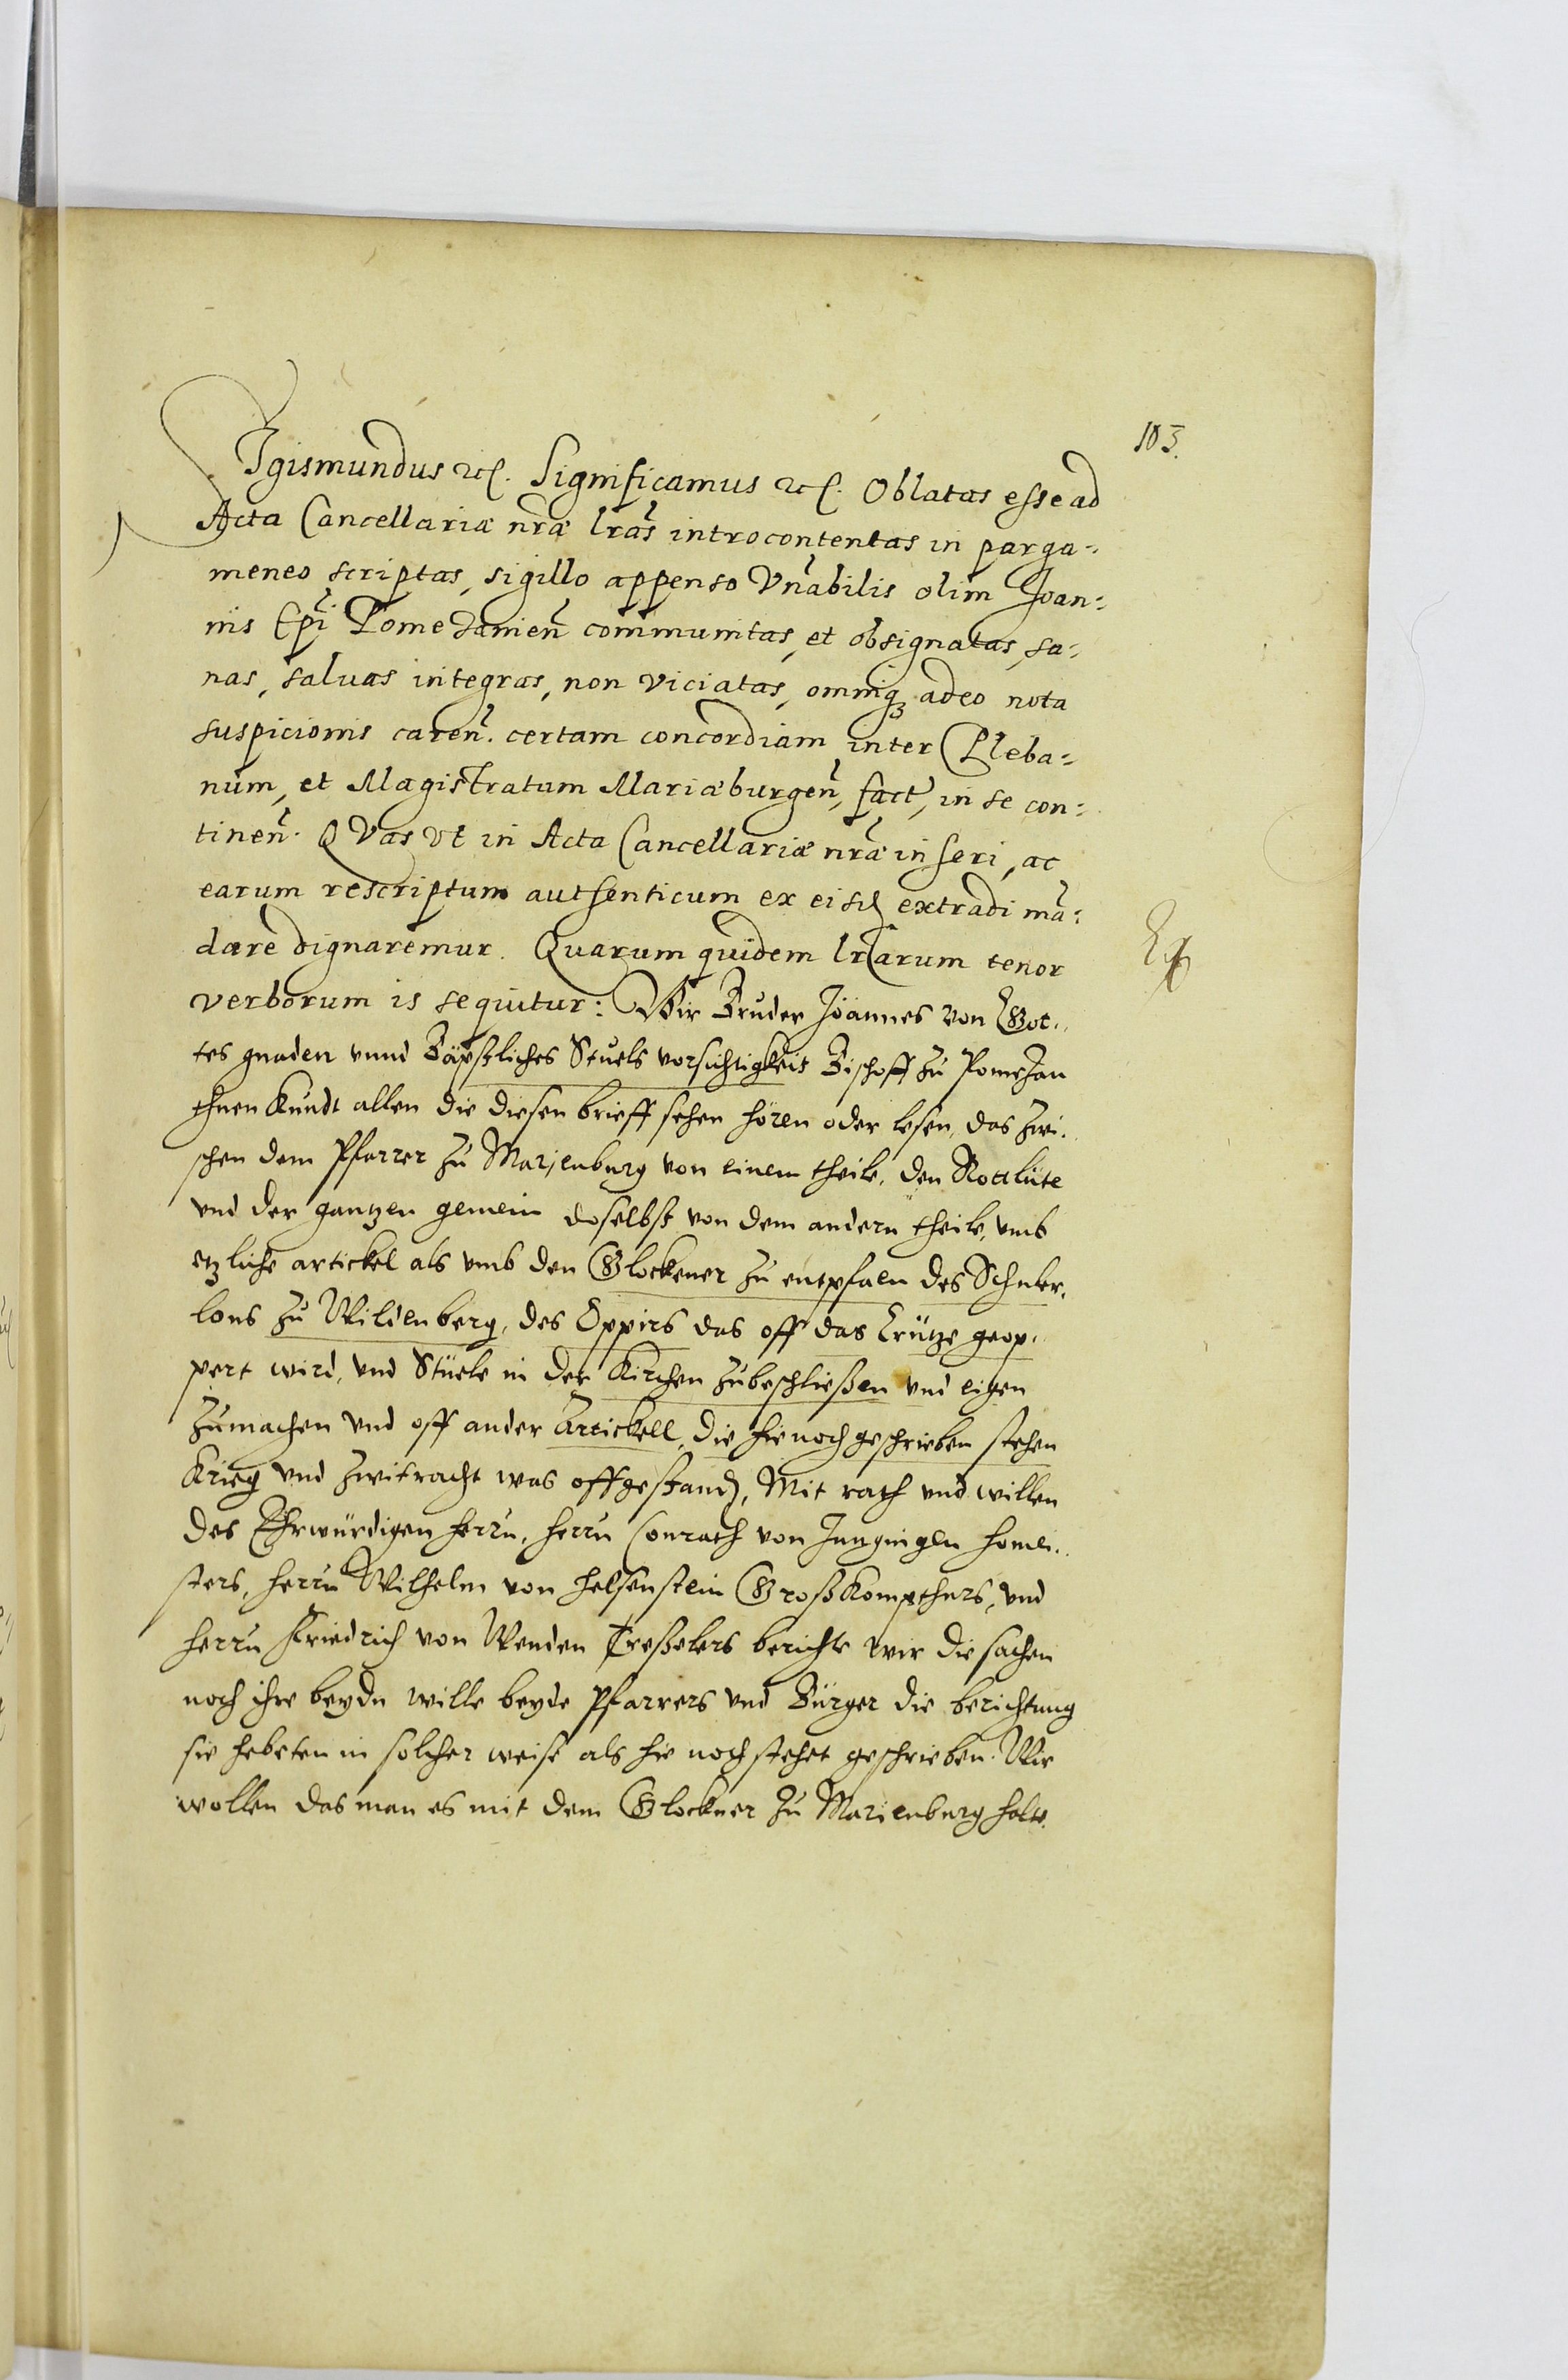 103.
Sigismundus etc. Significamus etc. Oblatas esse ad
Acta Cancellariæ nrãe lrãs introcontentas in parga-
meneo scriptas, sigillo appenso Vnãbilis olim Joan-
nis Epĩ Pomezanien̄ communitas, et obsignatas, sa-
nas, saluas integras, non viciatas, omniq3 adeo nota
suspicionis caren̄. certam concordiam inter Pleba-
num, et Magistratum Mariæburgen̄, fact, in se con-
tinen̄. QVas vt in Acta Cancellariæ nrãe inseri, ac
earum rescriptum authenticum ex eisd extradi mã-
dare dignaremur. Quarum quidem lrarum tenor
verborum is sequitur: Wir Bruder Joannes von Got-
tes gnaden vnnd Bäpstliches Stuels vorsichtigkeit Bischoff zu Pomezan
thuen kundt allen die diesen brieff sehen hören oder lesen, das zwi-
schen dem Pfarrer zu Marienburg von einem theile, den Rottlüte
vnd der gantzen gemein doselbst von dem andern theile, vmb
etzliche artickel als vmb den Glockener zu entpfaen des Schuler-
lons zu Willenberg, des Oppirs das off das Crütze geop-
pert wird, vnd Stüele in der Kirchen zubeschließen vnd eigen
zumachen vnd off ander Artickell, die hienoch geschrieben stehen
Krieg vnd zwitracht was offgestand, Mit rath vnd willen
des Ehrwürdigen herrn, herrn Conrath von Jungingen homei-
sters, herrn Wilhelm von helfenstein Großkompthurs, vnd
herrn Friedrich von Wenden Treßelers berichte wir die sachen
noch ihre beydn wille beyde Pfarrers vnd Bürger die berichtung
sie hebeten in solcher weise als hie noch stehet geschrieben. Wir
wollen das man es mit dem Glockner zu Marienburg halte.